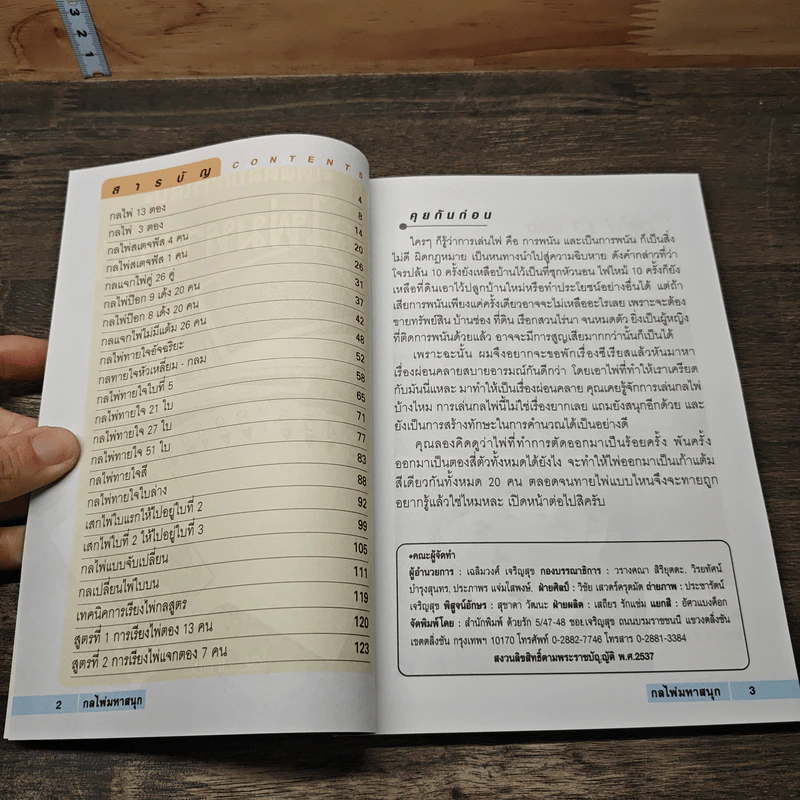 3
2
1
สารบัญ CONTENTS
กลไพ่ 13 ตอง 4
กลไพ่ 3 ตอง 8
กลไพ่สเตจฟัส 4 คน 14
กลไพ่สเตจฟัส 1 คน 20
กลแจกไพ่คู่ 26 คู่ 26
กลไพ่ป๊อก 9 เด้ง 20 คน 31
กลไพ่ป๊อก 8 เด้ง 20 คน 37
กลแจกไพ่ไม่มีแต้ม 26 คน 42
กลไพ่ทายใจอัจฉริยะ 48
กลทายใจหัวเหลี่ยม - กลม 52
กลไพ่ทายใจใบที่ 5 58
กลไพ่ทายใจ 21 ใบ 65
กลไพ่ทายใจ 27 ใบ 71
กลไพ่ทายใจ 51 ใบ 77
กลไพ่ทายใจสี 83
กลไพ่ทายใจใบล่าง 88
เสกไพ่ใบแรกให้ไปอยู่ใบที่ 2 92
เสกไพ่ใบที่ 2 ให้ไปอยู่ใบที่ 3 99
กลไพ่แบบจับเปลี่ยน 105
กลเปลี่ยนไพ่ใบบน 111
เทคนิคการเรียงไพ่กลสูตร 119
สูตรที่ 1 การเรียงไพ่ตอง 13 คน 120
สูตรที่ 2 การเรียงไพ่แจกตอง 7 คน 123
2 กลไพ่มหาสนุก
คุยกันก่อน
ใครๆ ก็รู้ว่าการเล่นไพ่ คือ การพนัน และเป็นการพนัน ก็เป็นสิ่ง
ไม่ดี ผิดกฎหมาย เป็นหนทางนำไปสู่ความฉิบหาย ดังคำกล่าวที่ว่า
โจรปล้น 10 ครั้งยังเหลือบ้านไว้เป็นที่ซุกหัวนอน ไฟไหม้ 10 ครั้งก็ยัง
เหลือที่ดินเอาไว้ปลูกบ้านใหม่หรือทำประโยชน์อย่างอื่นได้ แต่ถ้า
เสียการพนันเพียงแค่ครั้งเดียวอาจจะไม่เหลืออะไรเลย เพราะจะต้อง
ขายทรัพย์สิน บ้านช่อง ที่ดิน เรือกสวนไร่นา จนหมดตัว ยิ่งเป็นผู้หญิง
ที่ติดการพนันด้วยแล้ว อาจจะมีการสูญเสียมากกว่านั้นก็เป็นได้
เพราะฉะนั้น ผมจึงอยากจะขอพักเรื่องซีเรียสแล้วหันมาหา
เรื่องผ่อนคลายสบายอารมณ์กันดีกว่า โดยเอาไพ่ที่ทำให้เราเครียด
กับมันนี่แหละ มาทำให้เป็นเรื่องผ่อนคลาย คุณเคยรู้จักการเล่นกลไพ่
บ้างไหม การเล่นกลไพ่นี้ไม่ใช่เรื่องยากเลย แถมยังสนุกอีกด้วย และ
ยังเป็นการสร้างทักษะในการคำนวณได้เป็นอย่างดี
คุณลองคิดดูว่าไพ่ที่ทำการตัดออกมาเป็นร้อยครั้ง พันครั้ง
ออกมาเป็นตองสี่ตัวทั้งหมดได้ยังไง จะทำให้ไพ่ออกมาเป็นเก้าแต้ม
สีเดียวกันทั้งหมด 20 คน ตลอดจนทายไพ่แบบไหนจึงจะทายถูก
อยากรู้แล้วใช่ไหมหละ เปิดหน้าต่อไปสิครับ
•คณะผู้จัดทำ
ผู้อำนวยการ : เฉลิมวงศ์ เจริญสุข กองบรรณาธิการ : วรางคณา สิริยุตตะ, วิรยทัศน์
บำรุงสุนทร, ประภาพร แจ่มใสพงษ์, ฝ่ายศิลป์ : วิชัย เสวตร์ครุตมัต ถ่ายภาพ : ประชารัตน์
เจริญสุข พิสูจน์อักษร : สุชาดา วัฒนะ ฝ่ายผลิต : เสถียร รักแช่ม แยกสี : อัศวแบงค็อก
จัดพิมพ์โดย : สำนักพิมพ์ ด้วยรัก 5/47-48 ซอยเจริญสุข ถนนบรมราชชนนี แขวงตลิ่งชัน
เขตตลิ่งชัน กรุงเทพฯ 10170 โทรศัพท์ 0-2882-7746 โทรสาร 0-2881-3384
สงวนลิขสิทธิ์ตามพระราชบัญญัติ พ.ศ.2537
กลไพ่มหาสนุก 3